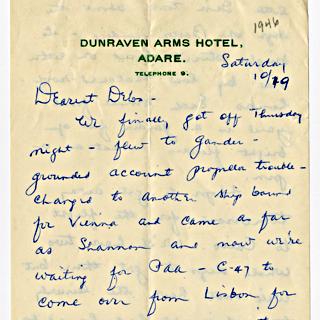 1946
DUNRAVEN ARMS HOTEL,
ADARE.
TELEPHONE 9.
Saturday
10/19
Dearest Debs -
We finally got off Thursday
night - flew to Gander -
grounded account propeller trouble -
changed to another ship bound
for Vienna and came as far
as Shannon and now we're
waiting for Paa - C-47 to
come over from Lisbon for